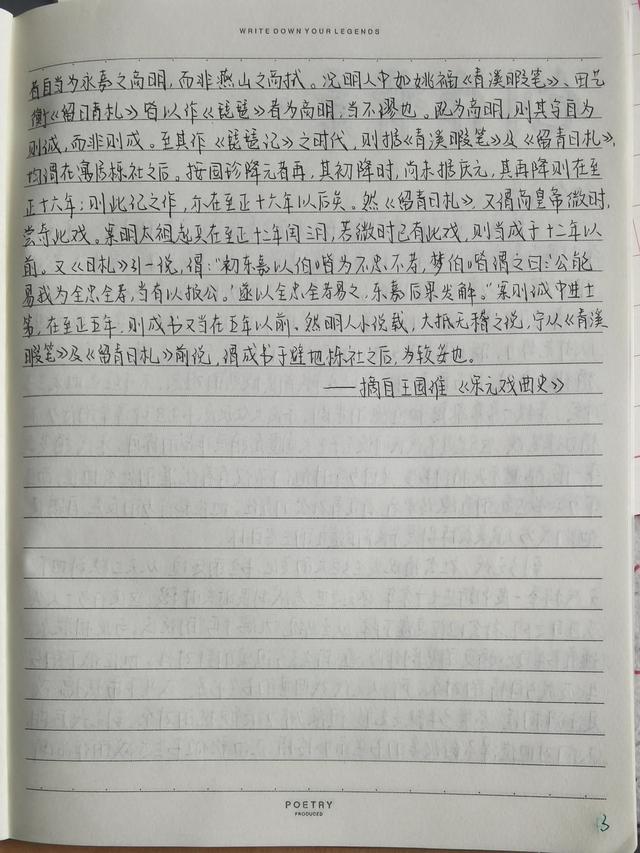 WRITE DOWN YOUR LEGENDS
者自当为永嘉之高明，而非燕山之高拭。况明人中如姚福《青溪暇笔》、田艺
衡《留日青札》皆以作《琵琶》者为高明，当不谬也。既为高明，则其字自为
则诚，而非则成。至其作《琵琶记》之时代，则据《青溪暇笔》及《留青日札》，
均谓在寓居栎社之后。按国珍降元者再，其初降时，尚未据庆元，其再降则在至
正十六年；则此记之作，亦在至正十六年以后矣。然《留青日札》又谓高皇帝微时，
尝奇此戏。案明太祖起兵在至正十二年闰三月，若微时已有此戏，则当成于十二年以
前。又《日札》引一说，谓：“初东嘉以伯喈为不忠不孝，梦伯喈谓之曰：‘公能
易我为全忠全孝，当有以报公。’遂以全忠全孝易之，东嘉后果发解。”案则诚中进士
第，在至正五年，则成书又当在五年以前。然明人小说载，大抵无稽之说，宁从《青溪
暇笔》及《留青日札》前说，谓成书于避地栎社之后，为较妥也。
——摘自王国维《宋元戏曲史》
POETRY
PRODUCED
3